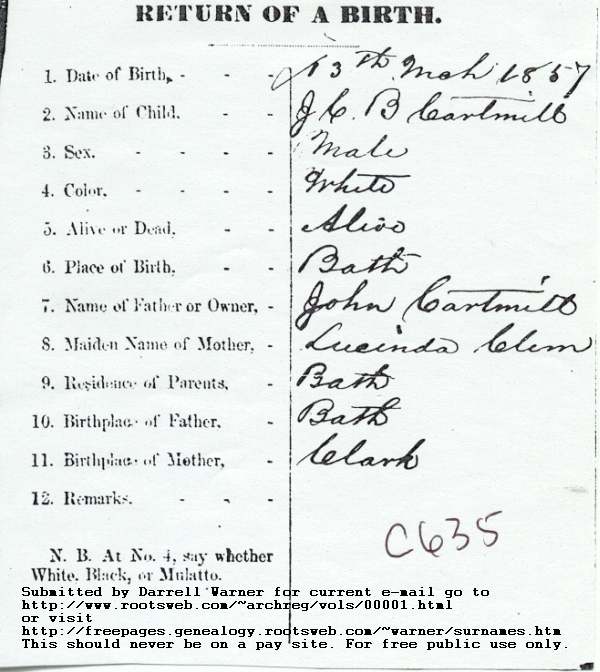 RETURN OF A BIRTH.
1. Date of Birth, - - - 13th Mch 1857
2. Name of Child. - - J. C. B Cartmill
3. Sex. - - - - Male
4. Color. - - - - White
5. Alive or Dead, - - Alive
6. Place of Birth, - - Bath
7. Name of Father or Owner, - John Cartmill
8. Maiden Name of Mother, - Lucinda Clem
9. Residence of Parents, - Bath
10. Birthplace of Father, - Bath
11. Birthplace of Mother, - Clark
12. Remarks. - - -
C635
N. B. At No. 4, say whether
White, Black, or Mulatto.
Submitted by Darrell Warner for current e-mail go to
http://www.rootsweb.com/~archreg/vols/00001.html
or visit
http://freepages.genealogy.rootsweb.com/~warner/surnames.htm
This should never be on a pay site. For free public use only.